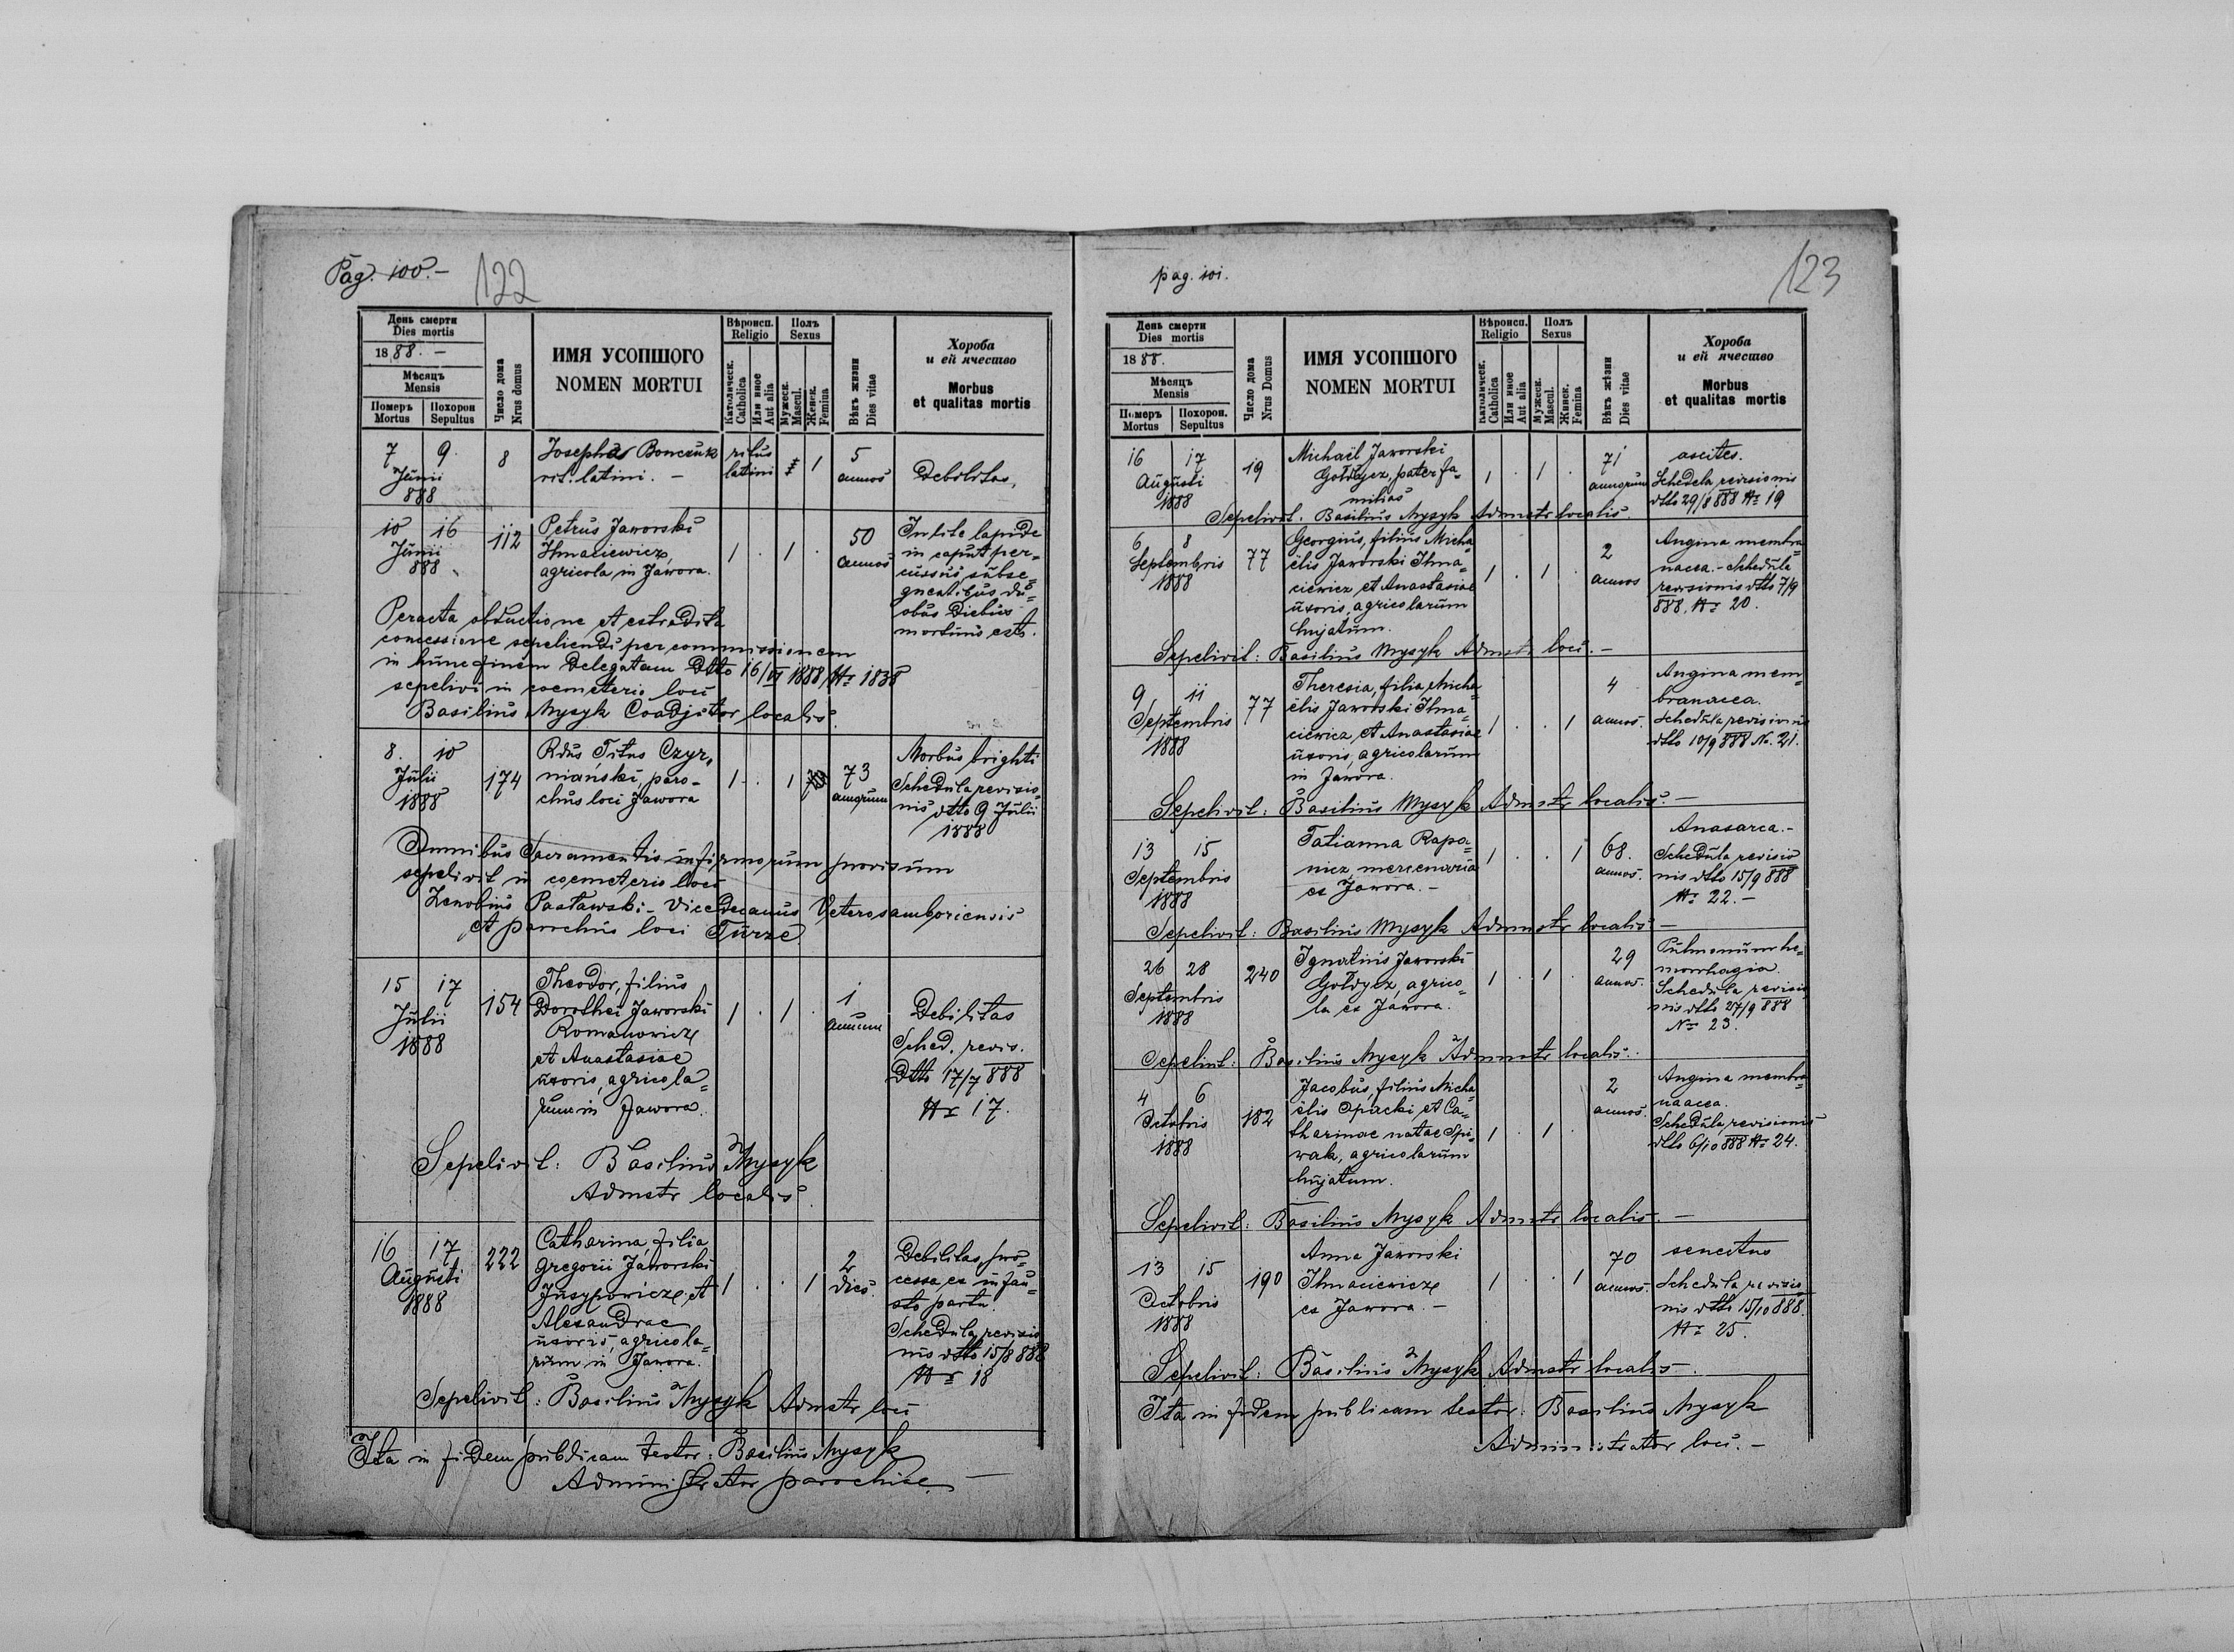 Pag. 100. –
122
День смерти
Dies mortis
1888. –
Мѣсяцъ
Mensis
Померъ Mortus
Похорон Sepultus
Число дома
Nrus domus
ИМЯ УСОПШОГО
NOMEN MORTUI
Вѣроисп.
Religio
Католическ.
Catholica
Или иное
Aut alia
Полъ
Sexus
Мужеск.
Mascul.
Женск.
Femina
Вѣкъ жизни
Dies vitae
Хороба
и ей ячество
Morbus
et qualitas mortis
7 9 8 Josephus Bonczuk ritus 1 5
Junii rit. latini. – latini annos Debilitas,
888
10 16 112 Petrus Jaworski 1 . 1 . 50 In lite lapide
Junii Ihnaciewicz, annos in caput per=
888 agricola in Jawora. cussus subse=
quentibus du=
obus diebus
mortuus est.
Peracta obductione et extradita
concessione sepeliendi per commissionem
in hunc finem delegatam dtto 16/VI 1888 Nr 1838
sepelivi in coemeterio loci
Basilius Mysyk Coadjutor localis.
8. 10 174 Rdus Titus Czyr= 1 . 1 73 Morbus brighti
Julii niański, paro- annorum Schedula revisio=
1888 chus loci Jawora nis dtto 9 Julii
1888
Omnibus Sacramentis infirmorum provisum
sepelivit in coemeterio loci
Zenobius Pasławski – Vicedecanus Veterosamboriensis
et parochus loci Turze
15 17 154 Theodor, filius 1 . 1 . 1 Debilitas
Julii Dorothei Jaworski annum Sched. revis.
1888 Romanowicz dtto 17/7 888
et Anastasiae Nr 17.
uxoris, agricola=
rum in Jawora.
Sepelivit: Basilius Mysyk
Admstr localis.
16 17 222 Catharina, filia 1 . . 1 2 Debilitas pro=
Augusti Gregorii Jaworski dies. cessa ex infau=
1888 Jusypowicz, et sto partu.
Alexandrae Schedula revisio
uxoris, agricola= nis dtto 15/8 888
rum in Jawora. Nr 18
Sepelivit: Basilius Mysyk Admstr loci
Ita in fidem publicam testor: Basilius Mysyk
Administrator parochiae. –
pag. 101.
123
День смерти
Dies mortis
1888.
Мѣсяцъ
Mensis
Померъ Mortus
Похорон. Sepultus
Число дома
Nrus Domus
ИМЯ УСОПШОГО
NOMEN MORTUI
Вѣроисп.
Religio
Католическ.
Catholica
Или иное
Aut alia
Полъ
Sexus
Мужеск.
Mascul.
Жинек.
Femina
Вѣкъ жѣзни
Dies vitae
Хороба
и ей ячество
Morbus
et qualitas mortis
16 17 19 Michaël Jaworski 1 . 1 . 71 ascites.
Augusti Gołdycz, pater fa= annorum Schedela revisionis
1888 milias dtto 29/8 888 Nr 19
Sepelivit. Basilius Mysyk Admstr localis.
6 8 77 Georgius, filius Micha= 1 . 1 . 2 Angina membra=
Septembris ëlis Jaworski Ihna= annos nacea. – Schedula
1888 ciewicz et Anastasiae revisionis dtto 7/9
uxoris, agricolarum 888. Nr 20.
hujatum.
Sepelivit: Basilius Mysyk Admstr loci. –
9 11 77 Theresia, filia Micha= 1 . . 1 4 Angina mem=
Septembris ëlis Jaworski Ihna= annos. branacea.
1888 ciewicz, et Anastasiae Schedula revisionis
uxoris, agricolarum dtto 10/9 888 No. 21.
in Jawora.
Sepelivit: Basilius Mysyk Admstr localis. –
13 15 Tatianna Rapa= 1 . . 1 68. Anasarca. –
Septembris nicz, mercenaria annos. Schedula revisio
1888 ex Jawora. – nis dtto 15/9 888
Nr 22. –
Sepelivit: Basilius Mysyk Admstr localis –
26 28 240 Ignatius Jaworski 1 . 1 . 29 Pulmonum he=
Septembris Gołdycz, agrico= annos. morrhagia.
1888 la ex Jawora. Schedula revisio
nis dtto 27/9 888
No 23.
Sepelivit: Basilius Mysyk Admnstr localis.
4 6 182 Jacobus, filius Micha= 1 . 1 . 2 Angina membra=
Octobris ëlis Spacki et Ca= annos. nacea.
1888 tharinae natae Spi= Schedula revisionis
wak, agricolarum dtto 6/10 888 Nr 24.
hujatum.
Sepelivit: Basilius Mysyk Admstr localis. –
13 15 190 Anna Jaworski 1 . . 1 70 senectus
Octobris Ihnaciewicz annos. Schedula revisio
1888 ex Jawora. – nis dtto 15/10 888.
Nr 25.
Sepelivit: Basilius Mysyk Admstr localis –
Ita in fidem publicam testor: Basilius Mysyk
Administrator loci. –